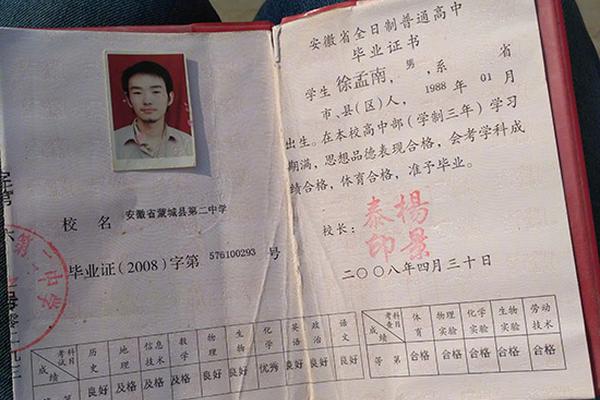 校 名 安徽省蒙城县第二中学
毕业证(2008)字第 576100293 号
第二中学
考试科目 历史 地理 信息技术 数学 物理 生物 化学 英语 政治 语文
成绩 良好 及格 及格 及格 良好 良好 优秀 良好 良好 良好
等 第
安徽省全日制普通高中
毕业证书
学生 徐孟南, 男, 系 省
市、县(区)人, 1988 年 01 月
出生。在本校高中部(学制三年)学习
期满, 思想品德表现合格, 会考学科成
绩合格, 体育合格, 准予毕业。
校长: 杨景泰印
二〇〇八年四月三十日
考查科目 体育 物理实验 化学实验 生物实验 劳动技术
成绩
等 第 合格 合格 合格 合格 合格